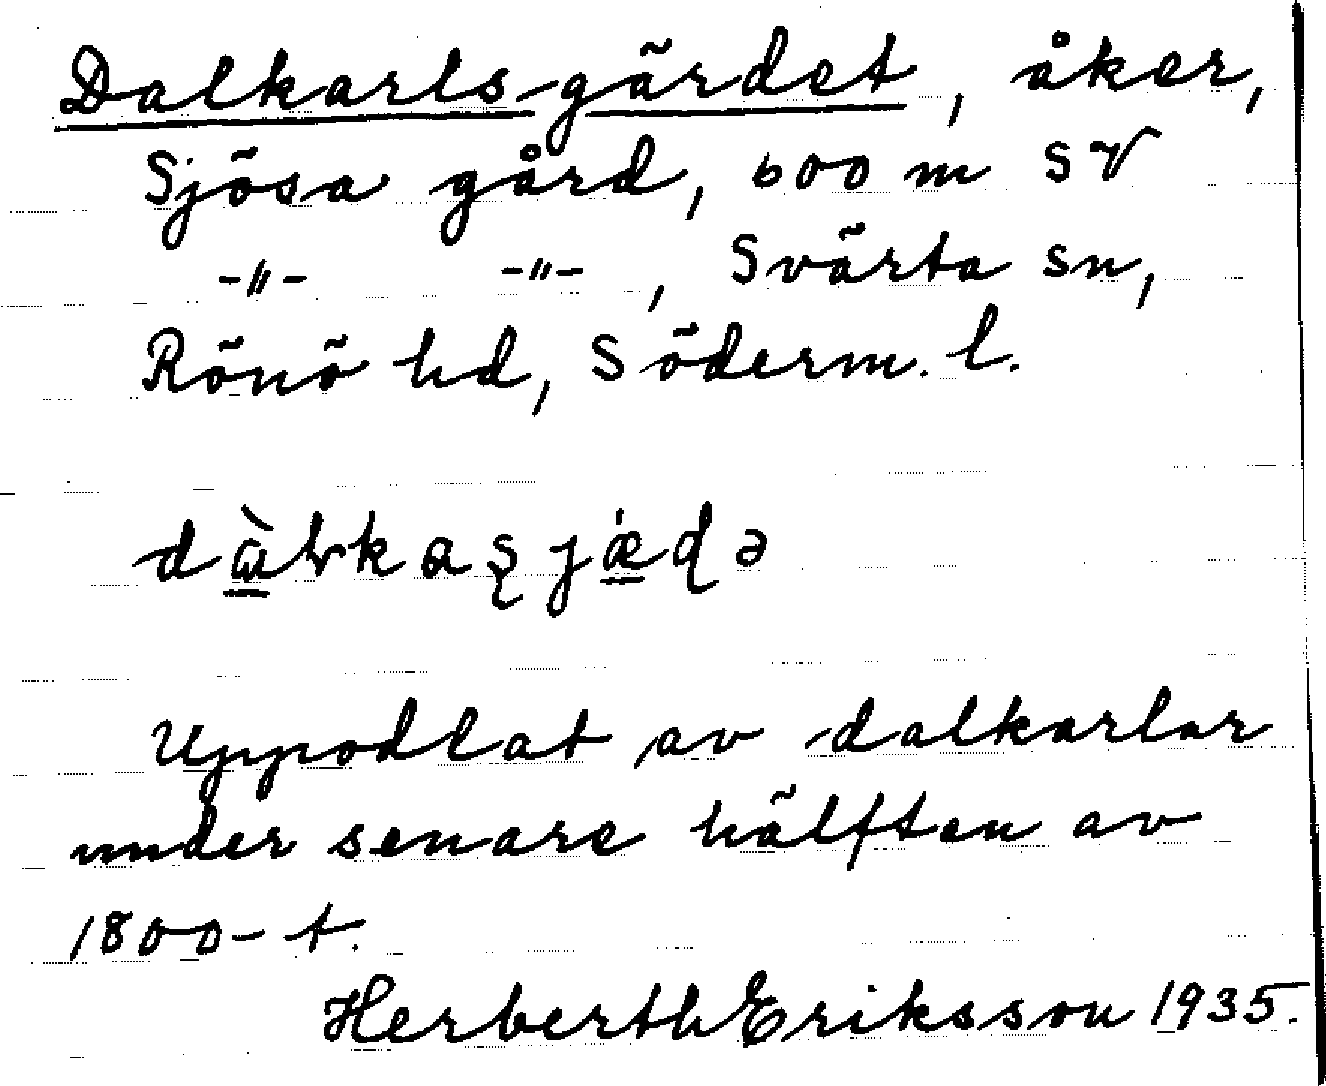 Dalkarlsgärdet, åker,
Sjösa gård, 600 m SV
-"- -"-, Svärta sn,
Rönö hd, Söderm. l.
dàlkaʂjǽɖə
Uppodlat av dalkarlar
under senare hälften av
1800-t.
Herberth Eriksson 1935.